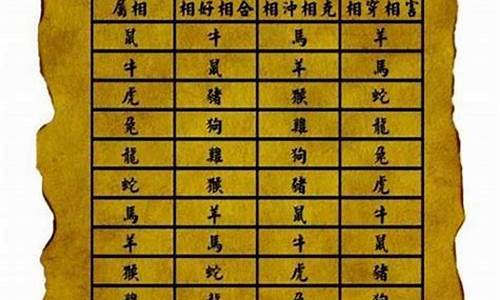 屬相 相好相合 相沖相克 相穿相害
鼠 牛 馬 羊
牛 鼠 羊 馬
虎 豬 猴 蛇
兔 狗 雞 龍
龍 雞 狗 兔
蛇 猴 豬 虎
馬 羊 鼠 牛
羊 馬 牛 鼠
猴 蛇 虎 豬
雞 龍 兔 狗